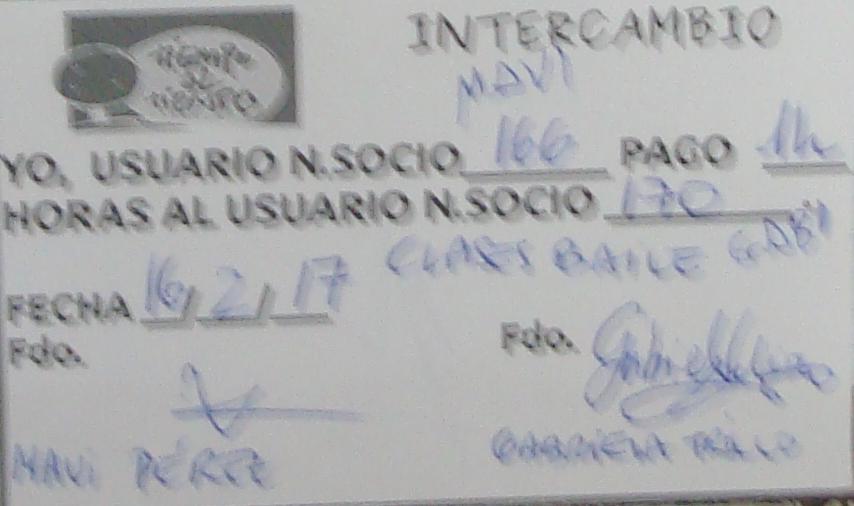 TIEMPO
AL
TIEMPO
INTERCAMBIO
MAVI
YO, USUARIO N.SOCIO 166 PAGO 1h
HORAS AL USUARIO N.SOCIO 170
CLASES BAILE GABI
FECHA 16/2/17
Fdo. Fdo.
MAVI PÉREZ GABRIELA